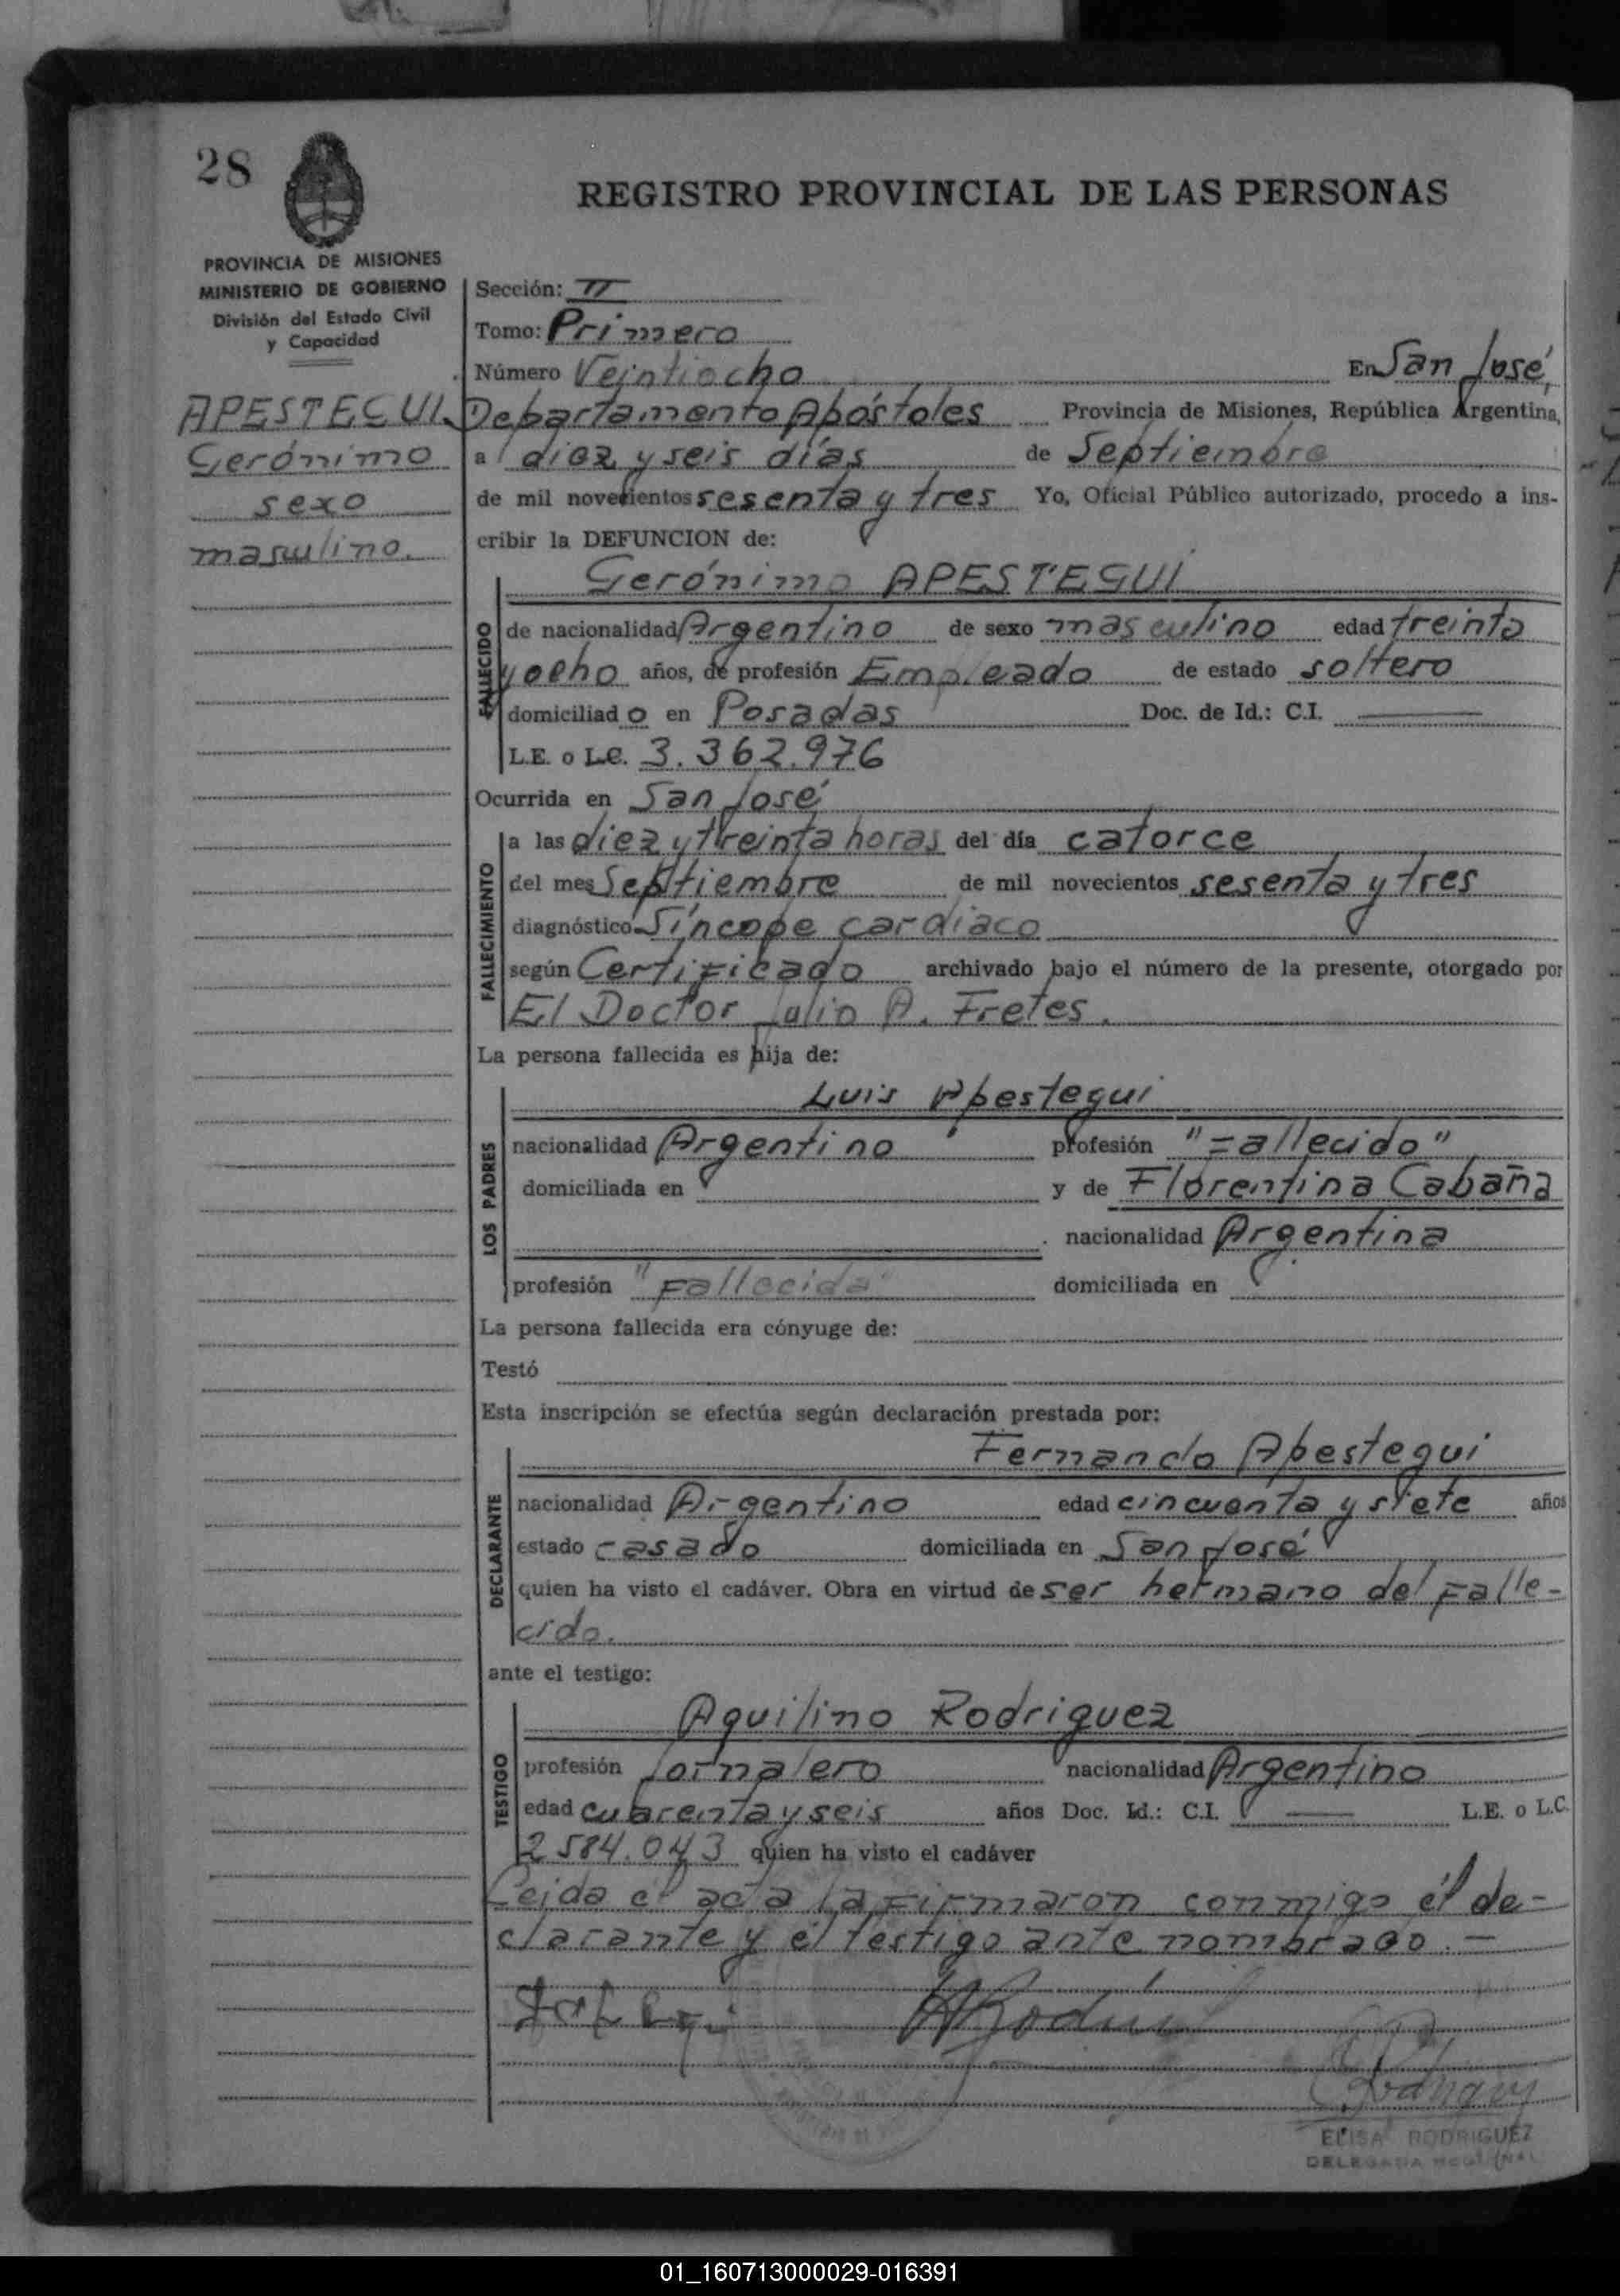 28
REGISTRO PROVINCIAL DE LAS PERSONAS
PROVINCIA DE MISIONES
MINISTERIO DE GOBIERNO
División del Estado Civil
y Capacidad
APESTEGUI
Gerónimo
sexo
masculino.
Sección: II
Tomo: Primero
Número Veintiocho En San José,
Departamento Apóstoles Provincia de Misiones, República Argentina,
a diez y seis días de Septiembre
de mil novecientos sesenta y tres Yo, Oficial Público autorizado, procedo a ins-
cribir la DEFUNCION de:
Gerónimo APESTEGUI
FALLECIDO
de nacionalidad Argentino de sexo masculino edad treinta
y ocho años, de profesión Empleado de estado soltero
domiciliad o en Posadas Doc. de Id.: C.I. ———
L.E. o L.C. 3.362.976
Ocurrida en San José
FALLECIMIENTO
a las diez y treinta horas del día catorce
del mes Septiembre de mil novecientos sesenta y tres
diagnóstico Síncope cardiaco
según Certificado archivado bajo el número de la presente, otorgado por
El Doctor Julio A. Fretes.
La persona fallecida es hija de:
LOS PADRES
Luis Apestegui
nacionalidad Argentino profesión "Fallecido"
domiciliada en y de Florentina Cabaña
nacionalidad Argentina
profesión "Fallecida" domiciliada en
La persona fallecida era cónyuge de:
Testó
Esta inscripción se efectúa según declaración prestada por:
DECLARANTE
Fernando Apestegui
nacionalidad Argentino edad cincuenta y siete años
estado casado domiciliada en San José
quien ha visto el cadáver. Obra en virtud de ser hermano del Falle-
cido.
ante el testigo:
TESTIGO
Aquilino Rodriguez
profesión Jornalero nacionalidad Argentino
edad cuarenta y seis años Doc. Id.: C.I. —— L.E. o L.C.
2584.043 quien ha visto el cadáver
Leida el acta la Firmaron conmigo él de-
clarante y el testigo ante nombrado.—
ELISA RODRIGUEZ
DELEGADA
01_160713000029-016391